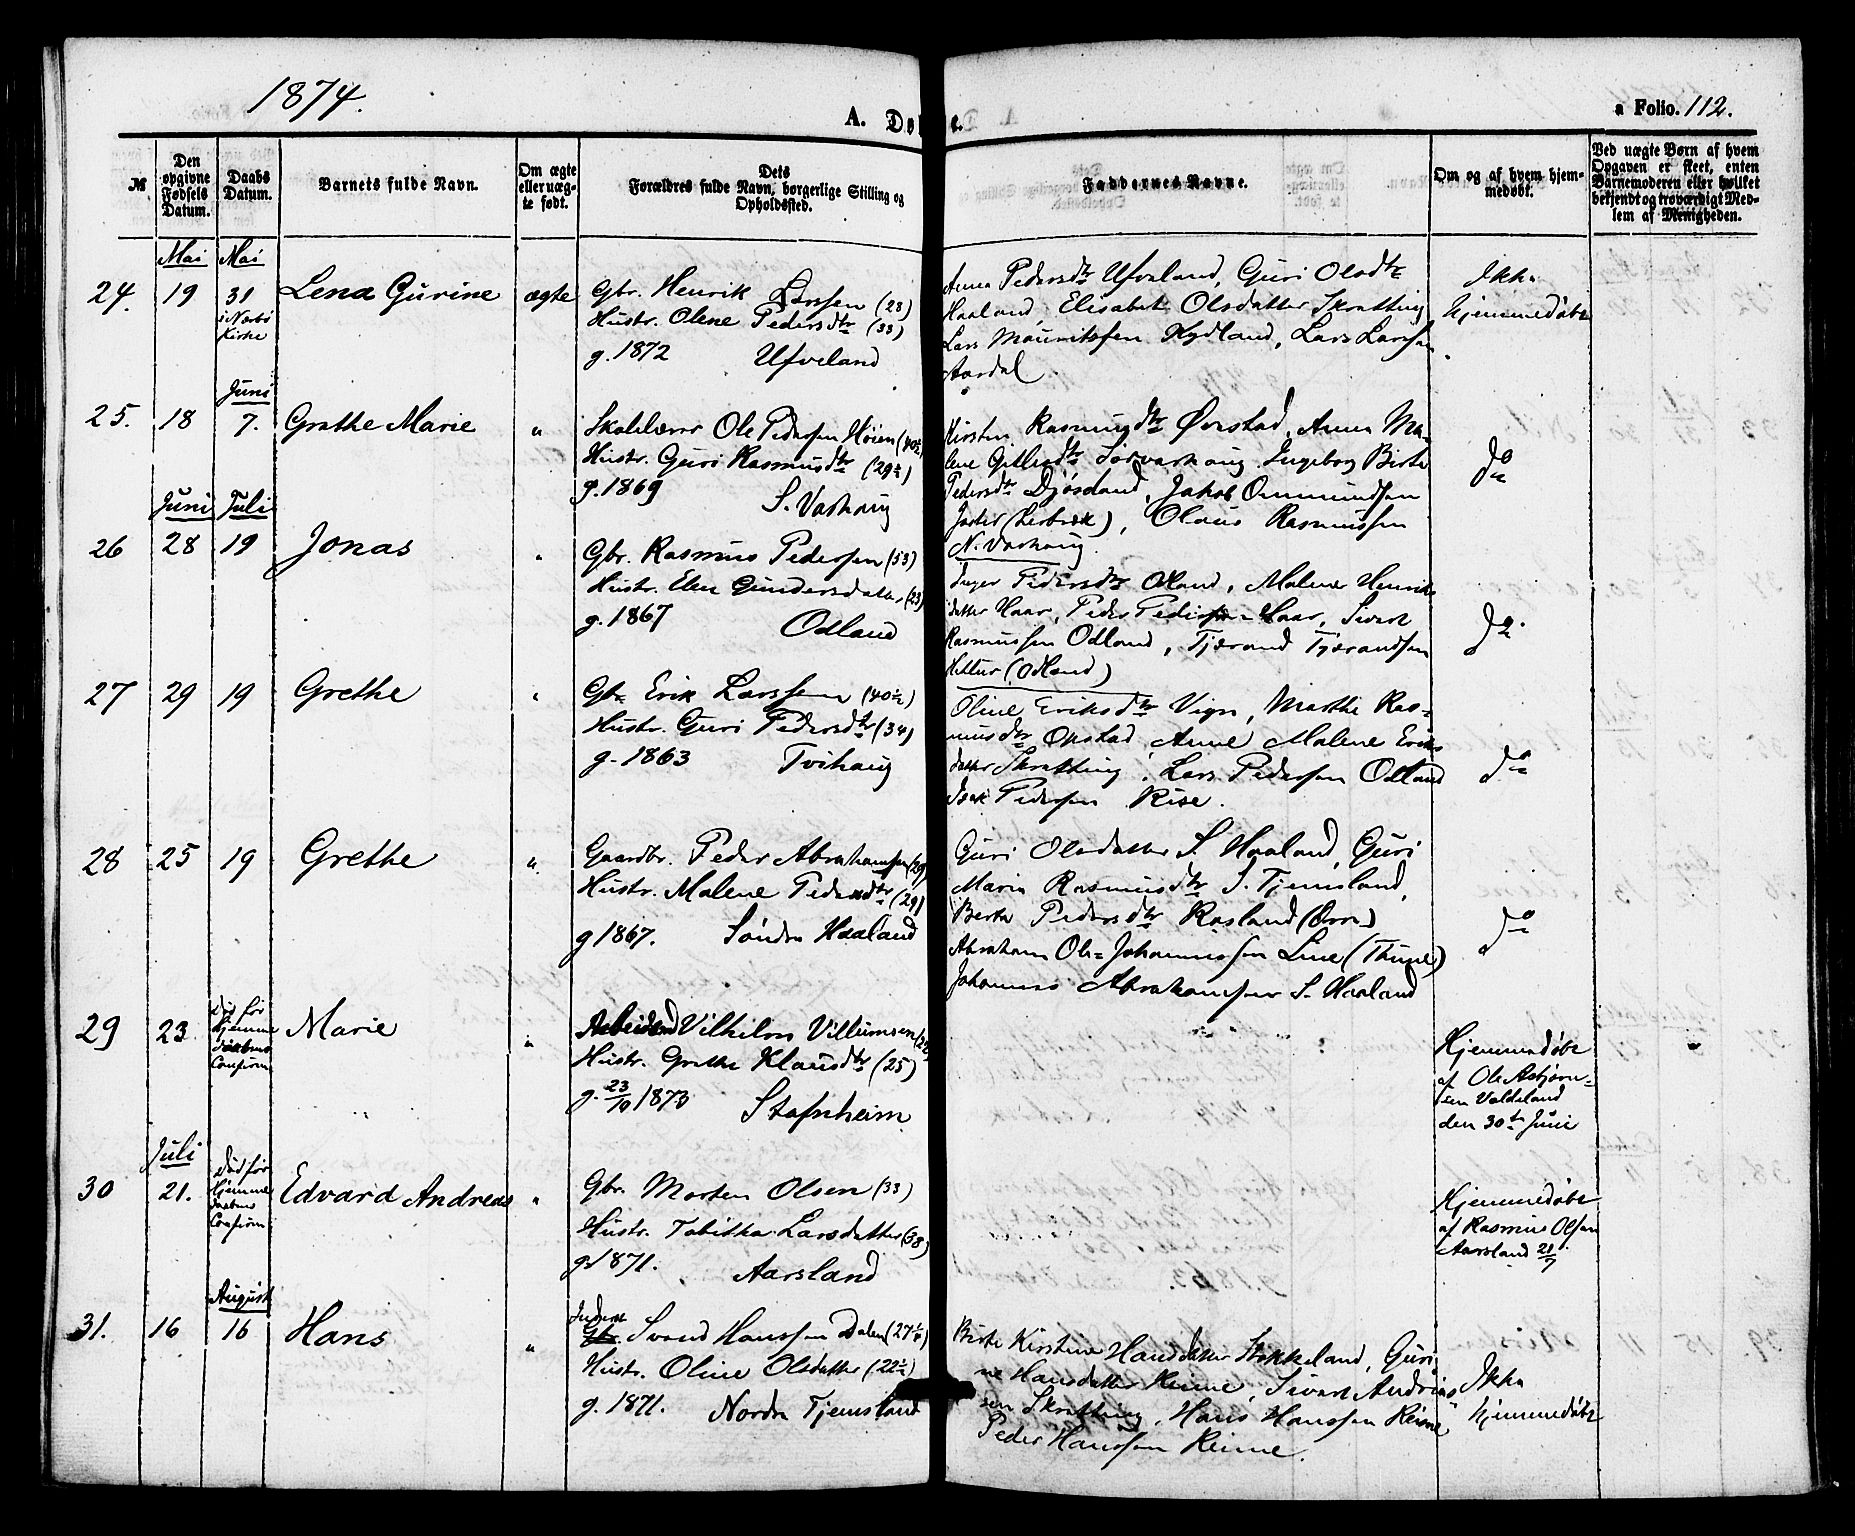 1874.
A. Dø
e.
a Folio. 112.
№
Den opgivne Fødsels Datum.
Daabs Datum.
Barnets fulde Navn.
Om ægte eller uægte født.
Dets Forældres fulde Navn, borgerlige Stilling og Opholdssted.
Faddernes Navne.
Om og af hvem hjemmedøbt.
Ved uægte Børn af hvem Opgaven er skeet, enten Barnemoderen eller hvilket bekjendt og troværdigt Medlem af Menigheden.
Mai Mai
24. 19 31 i Nærbø Kirke Lena Gurine ægte
Gbr. Henrik Larssen (28)
Hustr. Olene Pedersdtr (33)
g. 1872 Ufveland
Anna Pedersdtr Ufveland, Guri Olsdtr
Haaland, Elisabet Olsdatter Skretting
Lars Mauritssen Hydland, Lars Larssen
Aardal
Ikke
hjemmedøbt
Juni
25. 18 7. Grethe Marie "
Skolelærer Ole Pedersen Høien (40½)
Hustr. Guri Rasmusdtr (29½)
g. 1869 S. Varhaug
Kirsten Rasmusdtr Øvstad, Anna Ma-
lene Sørvarhaug, Ingeborg Birte
Pedersdtr Djøsland, Jakob Ommundsen
Olaus Rasmussen
N. Varhaug.
do
Juni Juli
26 28 19 Jonas "
Gbr. Rasmus Pedersen (53)
Hustr. Elen Gundersdatter (23)
g. 1867 Odland
Inger Pedersdtr Odland, Malene Henriks
datter Haar, Peder Pedersen Haar, Sivert
Rasmussen Odland, Tjerand Tjerandsen
Hettur (Odland)
do.
27 29 19 Grethe "
Gbr Erik Larssen (40½)
Hustr. Guri Pedersdtr (34)
g. 1863 Tvihaug
Oline Eriksdtr Vign, Marthe Ras-
musdtr Opstad, Anne Malene Eriks
datter Skretting, Lars Pedersen Odland
Isak Pedersen Rise.
do
28 25 19 Grethe "
Gaardbr. Peder Abrahamsen (29)
Hustr. Malene Pedersdtr (29)
g 1867. Søndre Haaland
Guri Olsdatter S. Haaland, Guri
Maria Rasmusdtr S. Tjemsland,
Berta Pedersdtr Rosland (Orre)
Abraham Ole Johannessen Line (Thime)
Johannes Abrahamsen S. Haaland
do
29 23. Død før Hjemme daabens Confirm Marie "
Arbeider Vilhelm Villumsen
Hustr. Grethe Klausdtr (25)
g. 23/10 1873 Stafnheim
Hjemmedøbt
af Ole Asbjørn-
sen Valdeland
den 30te Juni
Juli
30 21. Død før Hjemme daabens Confirm Edvard Andreas "
Gbr. Morten Olsen (33)
Hustr. Tabitha Larsdatter (38)
g. 1871. Aarsland
Hjemmedøbt
af Rasmus Olsen
Aarsland 21/7.
August
31. 16 16 Hans "
Inderst Gbr. Svend Hanssen Dalen (27¼)
Hustr. Oline Olsdatter (22½)
g. 1871. Nordre Tjemsland
Birte Kirstine Hansdatter Stokkeland, Guri-
ne Hansdatter Reime, Sivert Andreas
sen Skretting, Hans Hanssen Reime,
Peder Hanssen Reime.
Ikke
hjemmedøbt